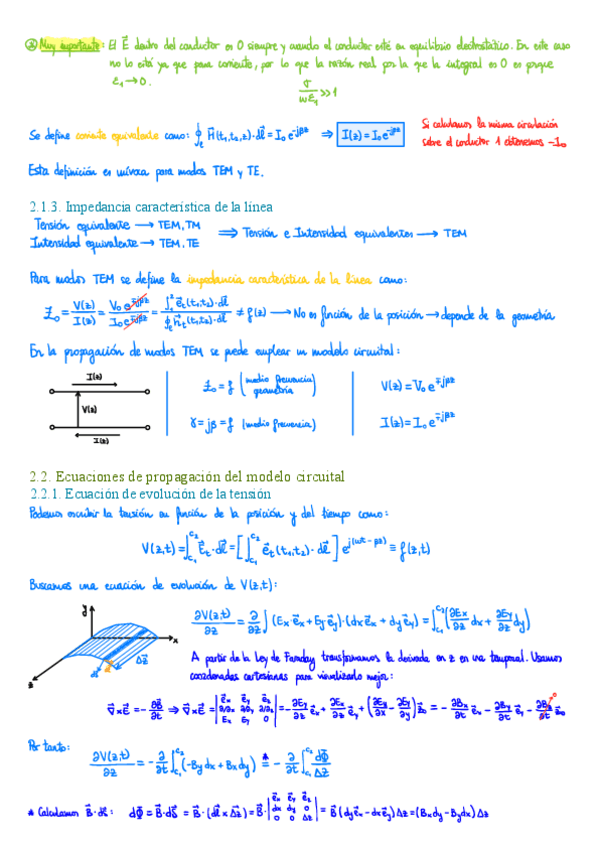 ⊛ Muy importante: El E⃗ dentro del conductor es 0 siempre y cuando el conductor esté en equilibrio electrostático. En este caso
no lo está ya que pasa corriente, por lo que la razón real por la que la integral es 0 es porque
ε₁→0.
σ/(wε₁) >> 1
Se define corriente equivalente como: ∮ H⃗(t₁,t₂,z)·dl⃗ = I₀e^(-jβz) ⇒ I(z)=I₀e^(-jβz)
Si calculamos la misma circulación
sobre el conductor 1 obtenemos -I₀
Esta definición es unívoca para modos TEM y TE.
2.1.3. Impedancia característica de la línea
Tensión equivalente → TEM, TM
Intensidad equivalente → TEM, TE
⇒ Tensión e Intensidad equivalentes → TEM
Para modos TEM se define la impedancia característica de la línea como:
Z₀ = V(z)/I(z) = V₀e^(∓jβz)/I₀e^(∓jβz) = ∫₁² e⃗t(t₁,t₂)·dl⃗ / ∮ h⃗t(t₁,t₂)·dl⃗ ≠ f(z) → No es función de la posición → depende de la geometría
En la propagación de modos TEM se puede emplear un modelo circuital:
I(z)
V(z)
I(z)
Z₀ = f (medio frecuencia geometría)
γ = jβ = f (medio frecuencia)
V(z) = V₀e^(∓jβz)
I(z) = I₀e^(∓jβz)
2.2. Ecuaciones de propagación del modelo circuital
2.2.1. Ecuación de evolución de la tensión
Podemos escribir la tensión en función de la posición y del tiempo como:
V(z,t) = ∫c₁^c₂ E⃗t·dl⃗ = [∫c₁^c₂ e⃗t(t₁,t₂)·dl⃗] e^(j(wt-βz)) ≡ f(z,t)
Buscamos una ecuación de evolución de V(z,t):
y
x
z
Δz
∂V(z,t)/∂z = ∂/∂z ∫(Ex·e⃗x + Ey·e⃗y)·(dx e⃗x + dy e⃗y) = ∫c₁^c₂ (∂Ex/∂z dx + ∂Ey/∂z dy)
A partir de la Ley de Faraday transformamos la derivada en z en una temporal. Usamos
coordenadas cartesianas para visualizarlo mejor:
∇⃗×E⃗ = -∂B⃗/∂t ⇒ ∇⃗×E⃗ = |e⃗x e⃗y e⃗z; ∂/∂x ∂/∂y ∂/∂z; Ex Ey 0| = -∂Ey/∂z e⃗x + ∂Ex/∂z e⃗y + (∂Ey/∂x - ∂Ey/∂y) z⃗₀ = -∂Bx/∂t e⃗x - ∂By/∂t e⃗y - ∂Bz/∂t z⃗₀
Por tanto:
∂V(z,t)/∂z = -∂/∂t ∫c₁^c₂ (-By dx + Bx dy) =* -∂/∂t ∫c₁^c₂ dΦ⃗/Δz
* Calculamos B⃗·ds⃗: dΦ = B⃗·ds⃗ = B⃗·(dl⃗ × Δz) = B⃗·|e⃗x e⃗y e⃗z; dx dy 0; 0 0 Δz| = B⃗(dy e⃗x - dx e⃗y)Δz = (Bx dy - By dx)Δz